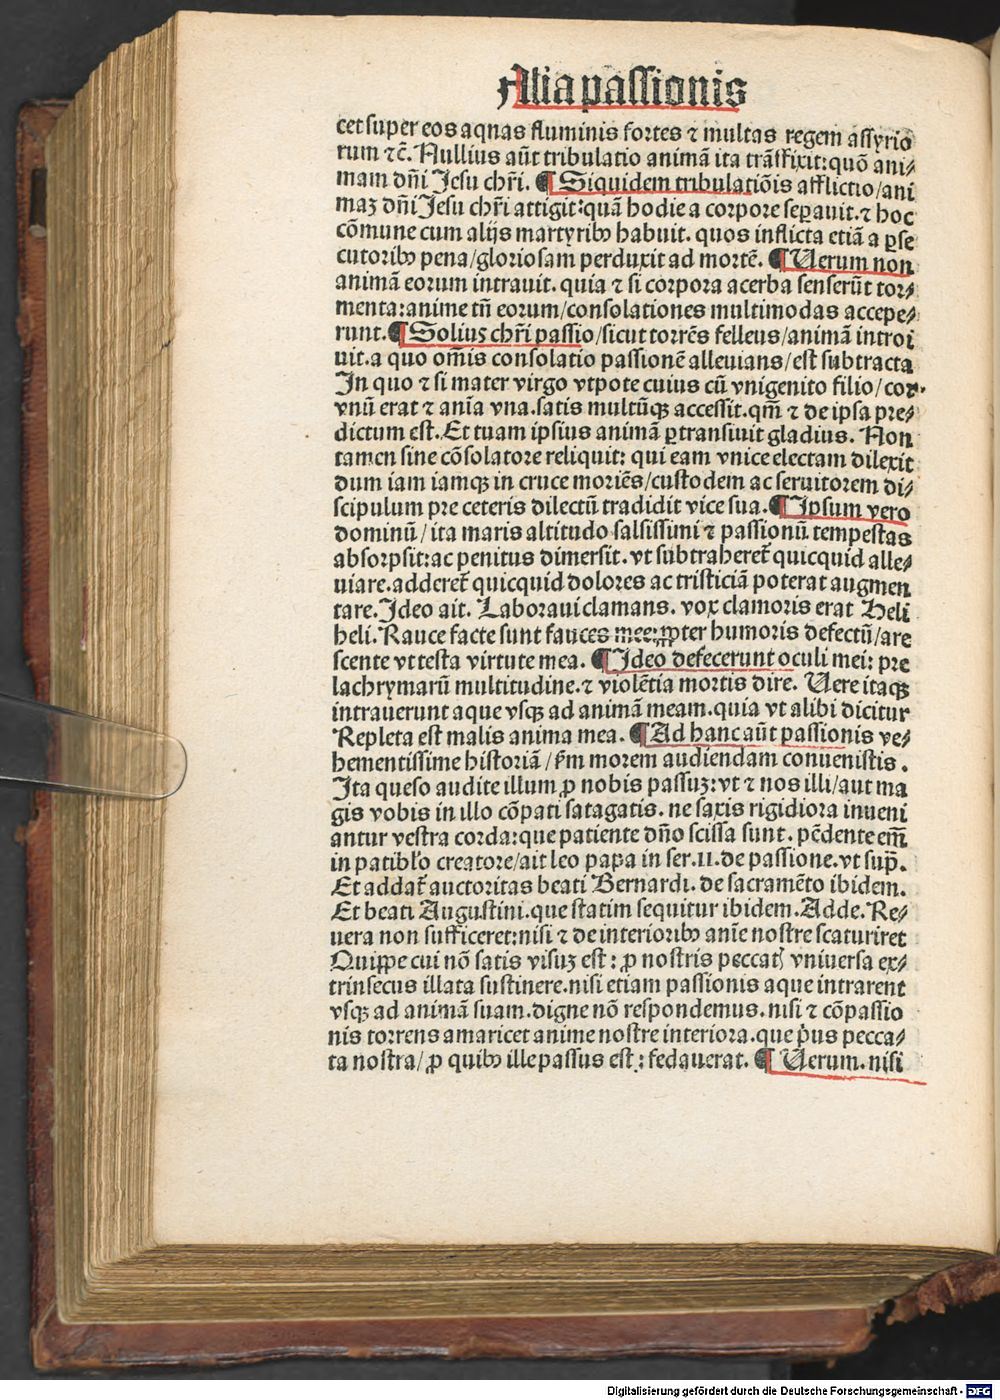 Alia passionis
cet super eos aquas fluminis fortes ⁊ multas regem assyrio
rum ⁊c̄. Nullius aūt tribulatio animā ita trāsfixit: quō ani⸗
mam dn̄i Jesu chr̄i. ¶ Siquidem tribulatiōis afflictio/ani
maꝫ dn̄i Jesu chr̄i attigit: quā hodie a corpore seꝑauit. ⁊ hoc
cōmune cum alijs martyribꝰ habuit. quos inflicta etiā a ꝑse
cutoribꝰ pena/gloriosam perduxit ad mortē. ¶ Uerum non
animā eorum intrauit. quia ⁊ si corpora acerba senserūt tor⸗
menta: anime tn̄ eorum/consolationes multimodas accepe⸗
runt. ¶ Soliuꝫ chr̄i passio/sicut torrēs felleus/animā introi
uit. a quo om̄is consolatio passionē alleuians/est subtracta
In quo ⁊ si mater virgo vtpote cuius cū vnigenito filio/cor⸗
vnū erat ⁊ anīa vna. satis multūqꝫ accessit. qm̄ ⁊ de ipsa pre⸗
dictum est. Et tuam ipsius animā ꝑtransiuit gladius. Non
tamen sine cōsolatore reliquit: qui eam vnice electam dilexit
dum iam iamqꝫ in cruce moriēs/custodem ac seruitorem di⸗
scipulum pre ceteris dilectū tradidit vice sua. ¶ Ipsum vero
dominū/ita maris altitudo salsissimi ⁊ passionū tempestas
absorpsit: ac penitus dimersit. vt subtraheret̄ quicquid alle⸗
uiare. adderet̄ quicquid dolores ac tristiciā poterat augmen
tare. Ideo ait. Laboraui clamans. vox clamoris erat Heli
heli. Rauce facte sunt fauces mee: ꝓpter humoris defectū/are
scente vt testa virtute mea. ¶ Ideo defecerunt oculi mei: pre
lachrymarū multitudine. ⁊ violētia mortis dire. Uere itaqꝫ
intrauerunt aque vsqꝫ ad animā meam. quia vt alibi dicitur
Repleta est malis anima mea. ¶ Ad hanc aūt passionis ve⸗
hementissime historiā/ẜm morem audiendam conuenistis.
Ita queso audite illum ꝓ nobis passuꝫ: vt ⁊ nos illi/aut ma
gis vobis in illo cōpati satagatis. ne saxis rigidiora inueni
antur vestra corda: que patiente dn̄o scissa sunt. pēdente em̄
in patibl̓o creatore/ait leo papa in ser. 11. de passione. vt sup̄.
Et addat̄ auctoritas beati Bernardi. de sacramēto ibidem.
Et beati Augustini. que statim sequitur ibidem. Adde. Re⸗
uera non sufficeret: nisi ⁊ de interioribꝰ anīe nostre scaturiret
Quippe cui nō satis visuꝫ est: ꝓ nostris peccatꝭ vniuersa ex⸗
trinsecus illata sustinere. nisi etiam passionis aque intrarent
vsqꝫ ad animā suam. digne nō respondemus. nisi ⁊ cōpassio
nis torrens amaricet anime nostre interiora. que pͥus pecca⸗
ta nostra/ꝓ quibꝰ ille passus est: fedauerat. ¶ Uerum. nisi
Digitalisierung gefördert durch die Deutsche Forschungsgemeinschaft - DFG